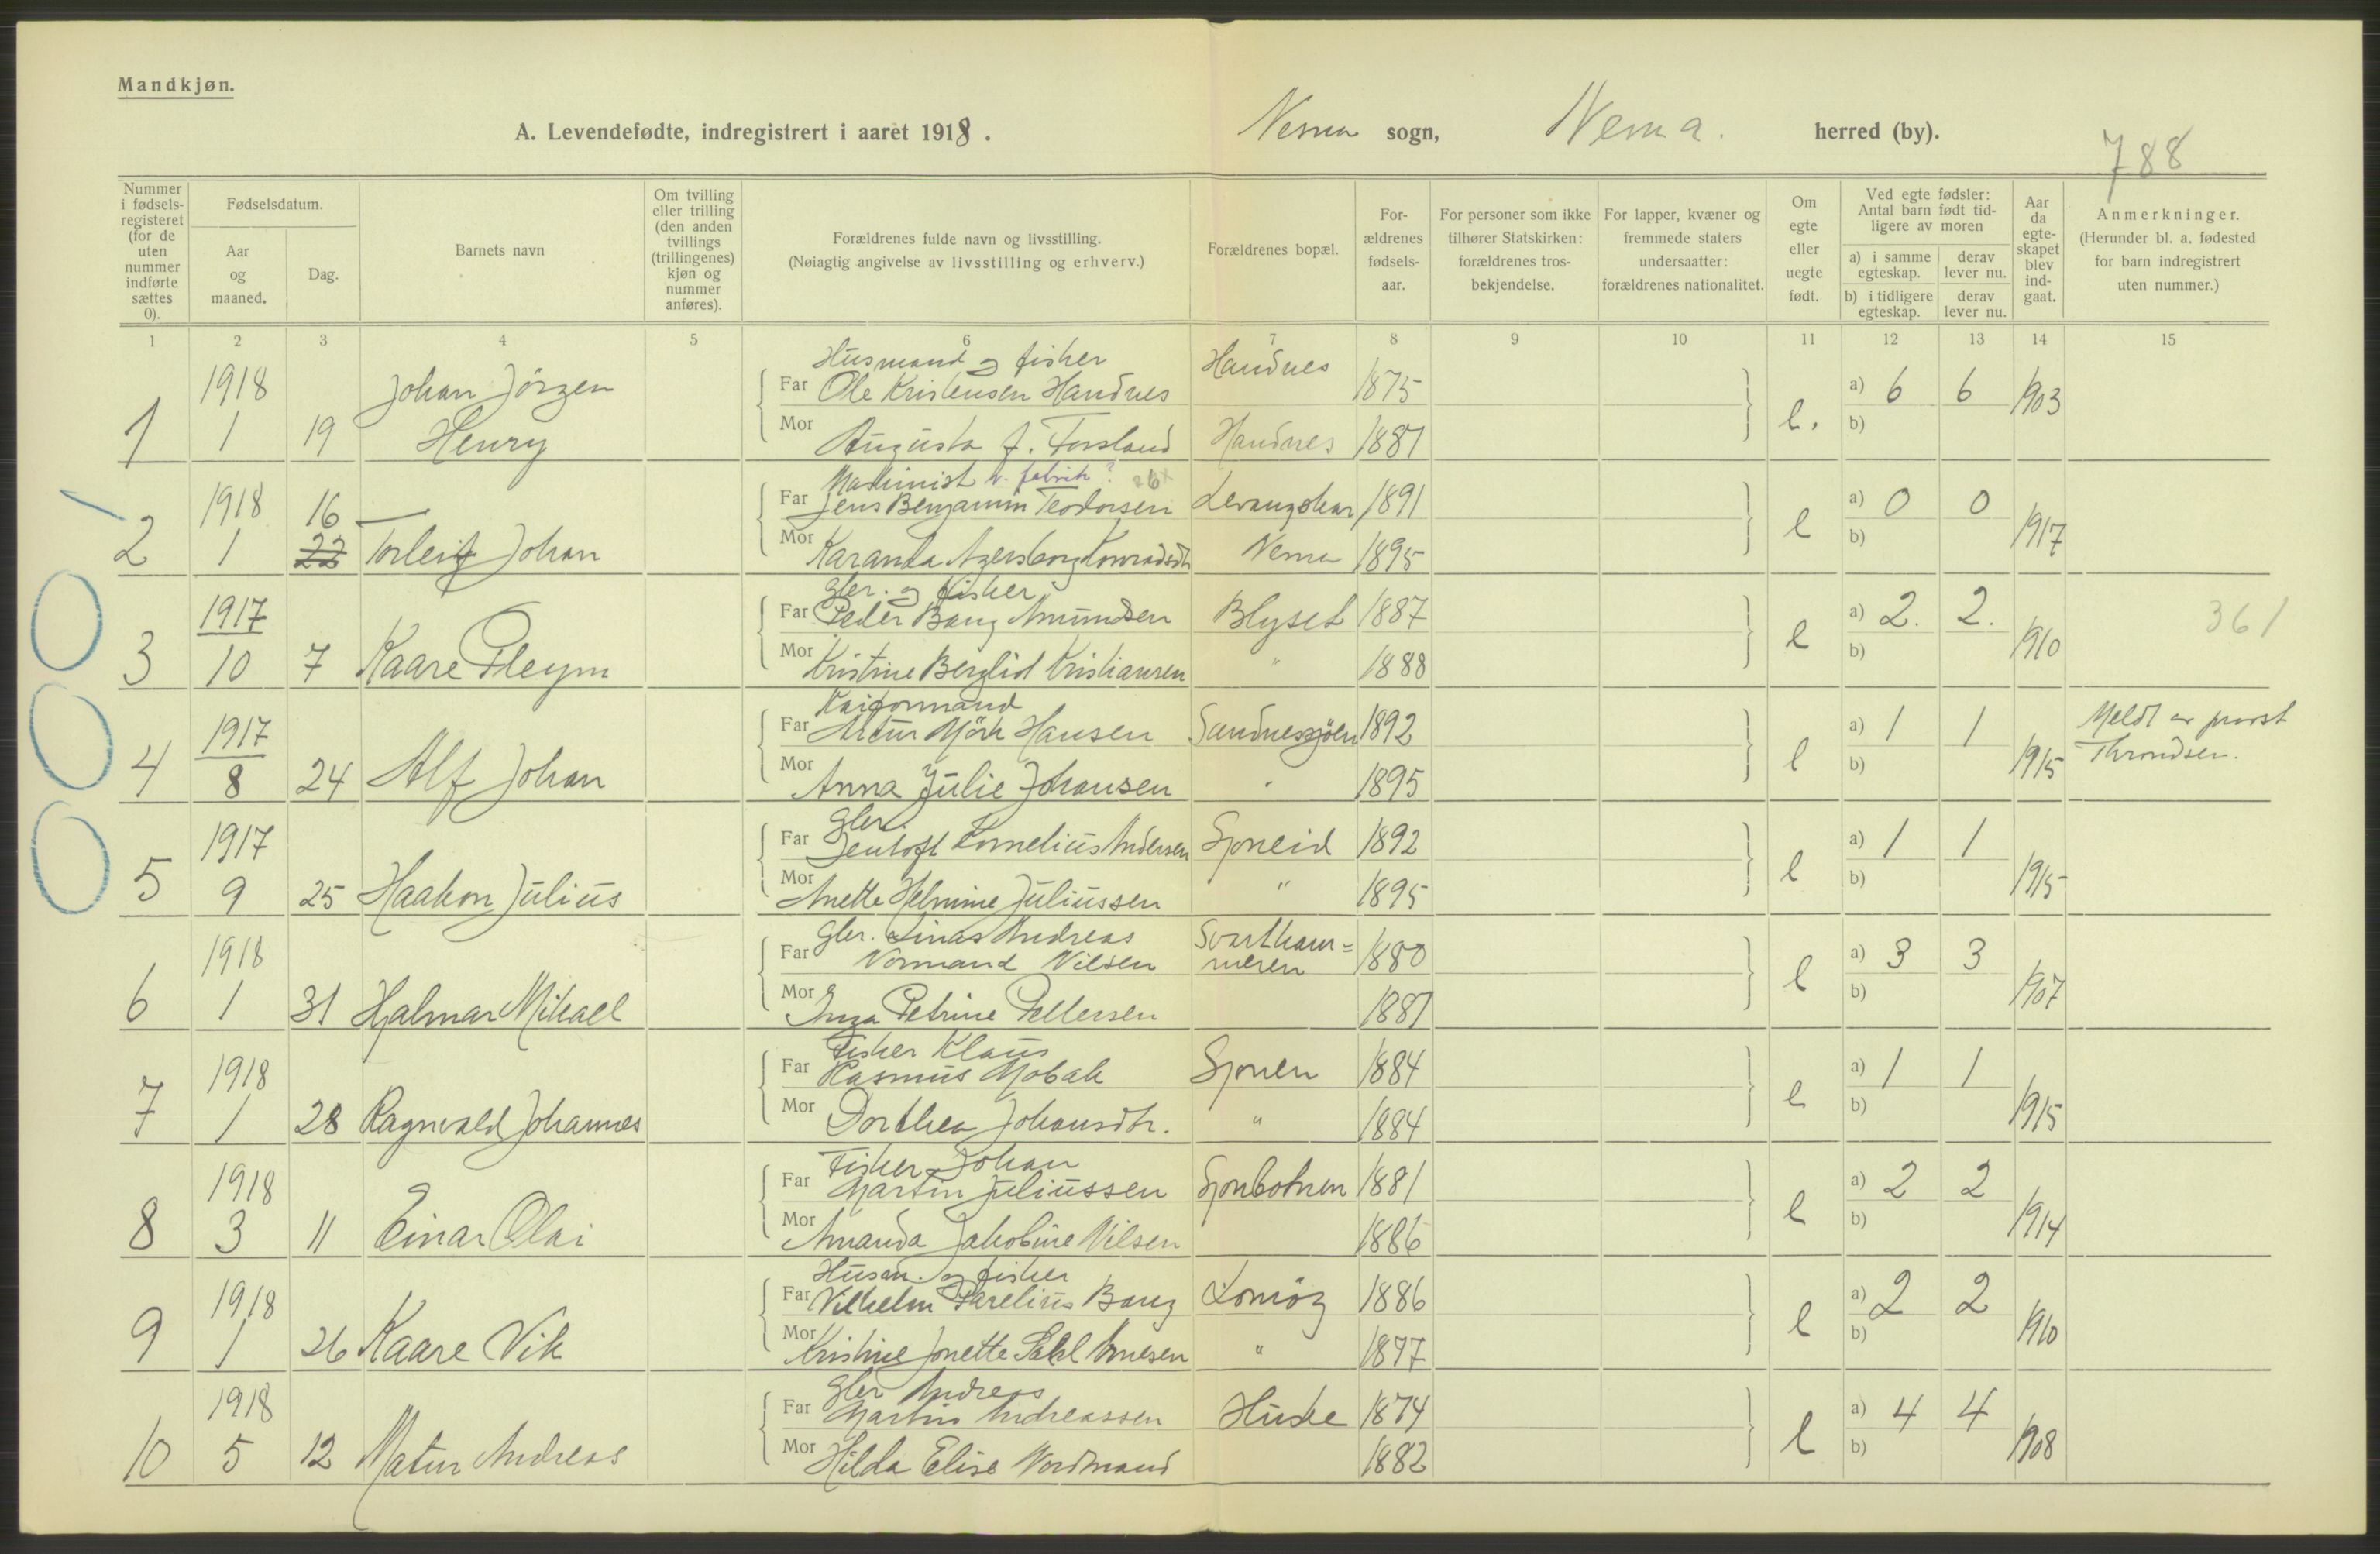 Mandkjøn.
A. Levendefødte, indregistrert i aaret 1918. Nesna sogn, Nesna. herred (by).
788
Nummer i fødsels-registeret (for de uten nummer indførte sættes 0).
Fødselsdatum.
Aar og maaned.
Dag.
Barnets navn
Om tvilling eller trilling (den anden tvillings (trillingenes) kjøn og nummer anføres).
Forældrenes fulde navn og livsstilling.
(Nøiagtig angivelse av livsstilling og erhverv.)
Forældrenes bopæl.
For-ældrenes fødsels-aar.
For personer som ikke tilhører Statskirken: forældrenes tros-bekjendelse.
For lapper, kvæner og fremmede staters undersaatter: forældrenes nationalitet.
Om egte eller uegte født.
Ved egte fødsler: Antal barn født tid-ligere av moren
a) i samme egteskap.
derav lever nu.
b) i tidligere egteskap.
derav lever nu.
Aar da egte-skapet blev ind-gaat.
Anmerkninger.
(Herunder bl. a. fødested for barn indregistrert uten nummer.)
1 2 3 4 5 6 7 8 9 10 11 12 13 14 15
Husmand og fisker Handnes
1918 Johan Jörgen Far Ole Kristensen Handnes 1875 a) 6 6 1903
1 1 19 Henry Mor Augusta J. Forsland Handnes 1887 e. b)
Maskinist v. fabrik?
1918 16 Far Jens Benjamin Teodorsen Levangskar 1891 a) 0 0
2 1 22 Torleif Johan Mor Karanda Konradsdtr Nesna 1895 e b) 1917
Gbr. og fisker
1917 Far Peder Bang Amundsen Blyset 1887 a) 2. 2. 361
3 10 7 Kaare Pleym Mor Kristine Berglid Kristiansen " 1888 e b) 1910
Kaiformand
1917 Far Artur Mörk Hansen Sandnessjöen 1892 a) 1 1 Meldt av prost
4 8 24 Alf Johan Mor Anna Julie Johansen " 1895 e b) 1915 Throndsen.
Gbr.
1917 Far Jentoft Kornelius Andersen Sjoneid 1892 a) 1 1
5 9 25 Haakon Julius Mor Anette Helmine Juliussen " 1895 e b) 1915
Gbr. Linas Andreas Svartham=
1918 Far Normand Nilsen meren 1880 a) 3 3
6 1 31 Hjalmar Mikael Mor Inga Petrine Pettersen 1887 e b) 1907
Fisker Klaus
1918 Far Rasmus Mobak Sjonen 1884 a) 1 1
7 1 28 Ragnvald Johannes Mor Dorthea Johansdtr. " 1884 e b) 1915
Fisker Johan
1918 Far Martin Juliussen Sjonbotnen 1881 a) 2 2
8 3 11 Einar Olai Mor Amanda Jakobine Nilsen 1886 e b) 1914
Husm. og fisker
1918 Far Vilhelm Parelius Bang 1886 a) 2 2
9 1 26 Kaare Vik Mor Kristine Jonette Arnesen " 1877 e b) 1910
Gbr Andreas
1918 Far Martin Andreassen Husbe 1874 a) 4 4
10 5 12 Andreas Mor Hilda Elise Nordmand 1882 e b) 1908